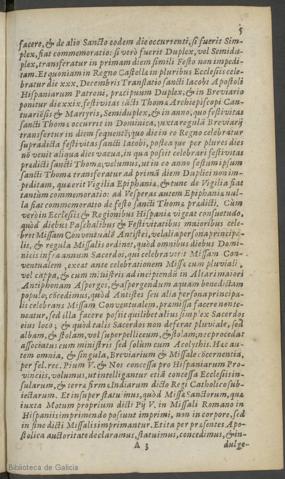 5
facere, & de alio Sancto eodem die occurrenti, si fuerit Sim-
plex, fiat commemoratio: si verò fuerit Duplex, vel Semidu-
plex, transferatur in primam diem simili Festo non impedi-
tam. Et quoniam in Regno Castellæ in pluribus Ecclesiis cele-
bratur die xxx. Decembris Translatio sancti Iacobi Apostoli
Hispaniarum Patroni, præcipuum Duplex, & in Breviario
ponitur die xxix. festivitas sācti Thomæ Archiepiscopi Can-
tuariēsis & Martyris, Semiduplex, & in anno, quo festivitas
sancti Thomæ occurrit in Dominica, iuxta regulā Breviarij
transfertur in diem sequentē, quo die in eo Regno celebratur
supradicta festivitas sancti Iacobi, postea que per plures dies
nō venit aliqua dies vacua, in qua possit celebrari festivitas
prædicti sancti Thomæ, volumus, ut in eo anno festum ipsum
sancti Thomæ transferatur ad primā diem Duplici non im-
peditam, quæ erit Vigilia Epiphaniæ, & tunc de Vigilia fiat
tantùm commemoratio: ad Vesperas autem Epiphaniæ nul-
la fiat commemoratio de festo sancti Thomæ prædicti. Cùm
verò in Ecclesiis & Regionibus Hispaniæ vigeat consuetudo,
quòd diebus Paschalibus & Festivitatibus maioribus cele-
bret Missam Conventualē Antistes, vel alia persona princi pa-
lis, & regula Missalis ordinet, quòd omnibus diebus Domi-
nicis infra annum Sacerdos, qui celebraturus Missam Con-
ventualem, exeat ante celebrationem Missæ cum pluviali,
vel cappa, & cum ministris ad incipiendū in Altari maiori
Antiphonam Asperges, & aspergendum aquam benedictam
populo, cōcedimus, quòd Antistes seu alia persona principa-
lis celebrans Missam Conventualem, præmissa facere nonte-
neatur, sed illa facere possit quilibet alius simplex Sacerdos
eius loco; & quòd talis Sacerdos non deferat pluviale, sed
albam, & stolam, vel superpelliceum, & stolam, nec procedat
associatus cum ministris sed solùm cum Acolythis. Hæc au-
tem omnia, & singula, Breviarium & Missale cōcernentia,
per fel. rec. Pium V. & Nos concessa pro Hispaniarum Pro-
vinciis, volumus, ut intelligantur etiā concessa Ecclesiis in-
sularum, & terræ firmæ Indiarum dicto Regi Catholico sub-
iectarum. Et insuper statuimus, quòd Missæ Sanctorum, quæ
iuxta Motum proprium dicti Pij V. in Missali Romano in
Hispaniis imprimendo possunt imprimi, non in corpore, sed
in fine dicti Missalis imprimantur. Et ita per præsentes Apo-
stolica auctoritate declaramus, statuimus, concedimus, & in-
A 3
dulge-
Biblioteca de Galicia